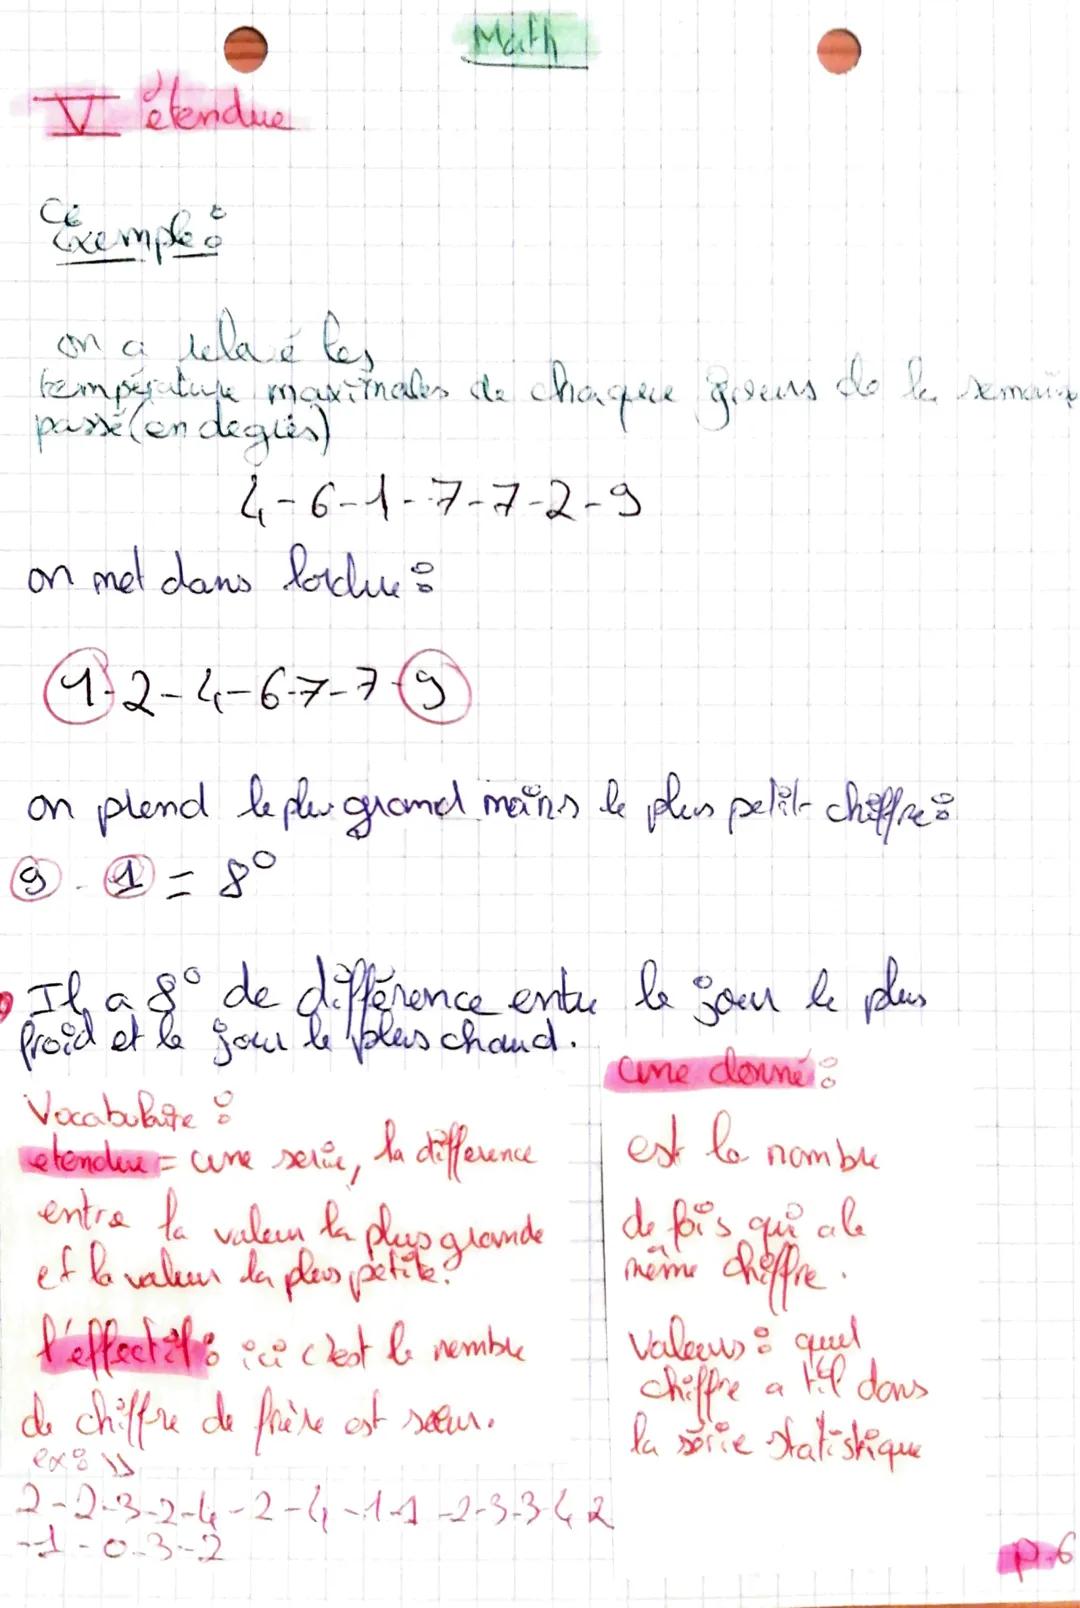 Math
V étendue
Exemple :
on a les
température maximales de chaque jours de la semaine
passé (en degrés)
4-6-1-7-7-2-9
on met dans lordre :
1-2-4-6-7-7-9
on prend le plus grand moins le plus petit chiffre :
9 - 1 = 8°
Il a 8° de différence entre le jour le plus
froid et le jour le plus chaud.
Vocabulaire :
etendue = une serie, la difference
entre la valeur la plus grande
et la valeur la plus petite.
l'effectif : ici c'est le nombre
de chiffre de frère est sœur.
ex :
2-2-3-2-4-2-4-1-1-2-3-3-4 2
-1-0-3-2
une donné :
est le nombre
de fois qui a le
même chiffre.
Valeurs : quel
chiffre a t'il dans
la série statistique
p.6